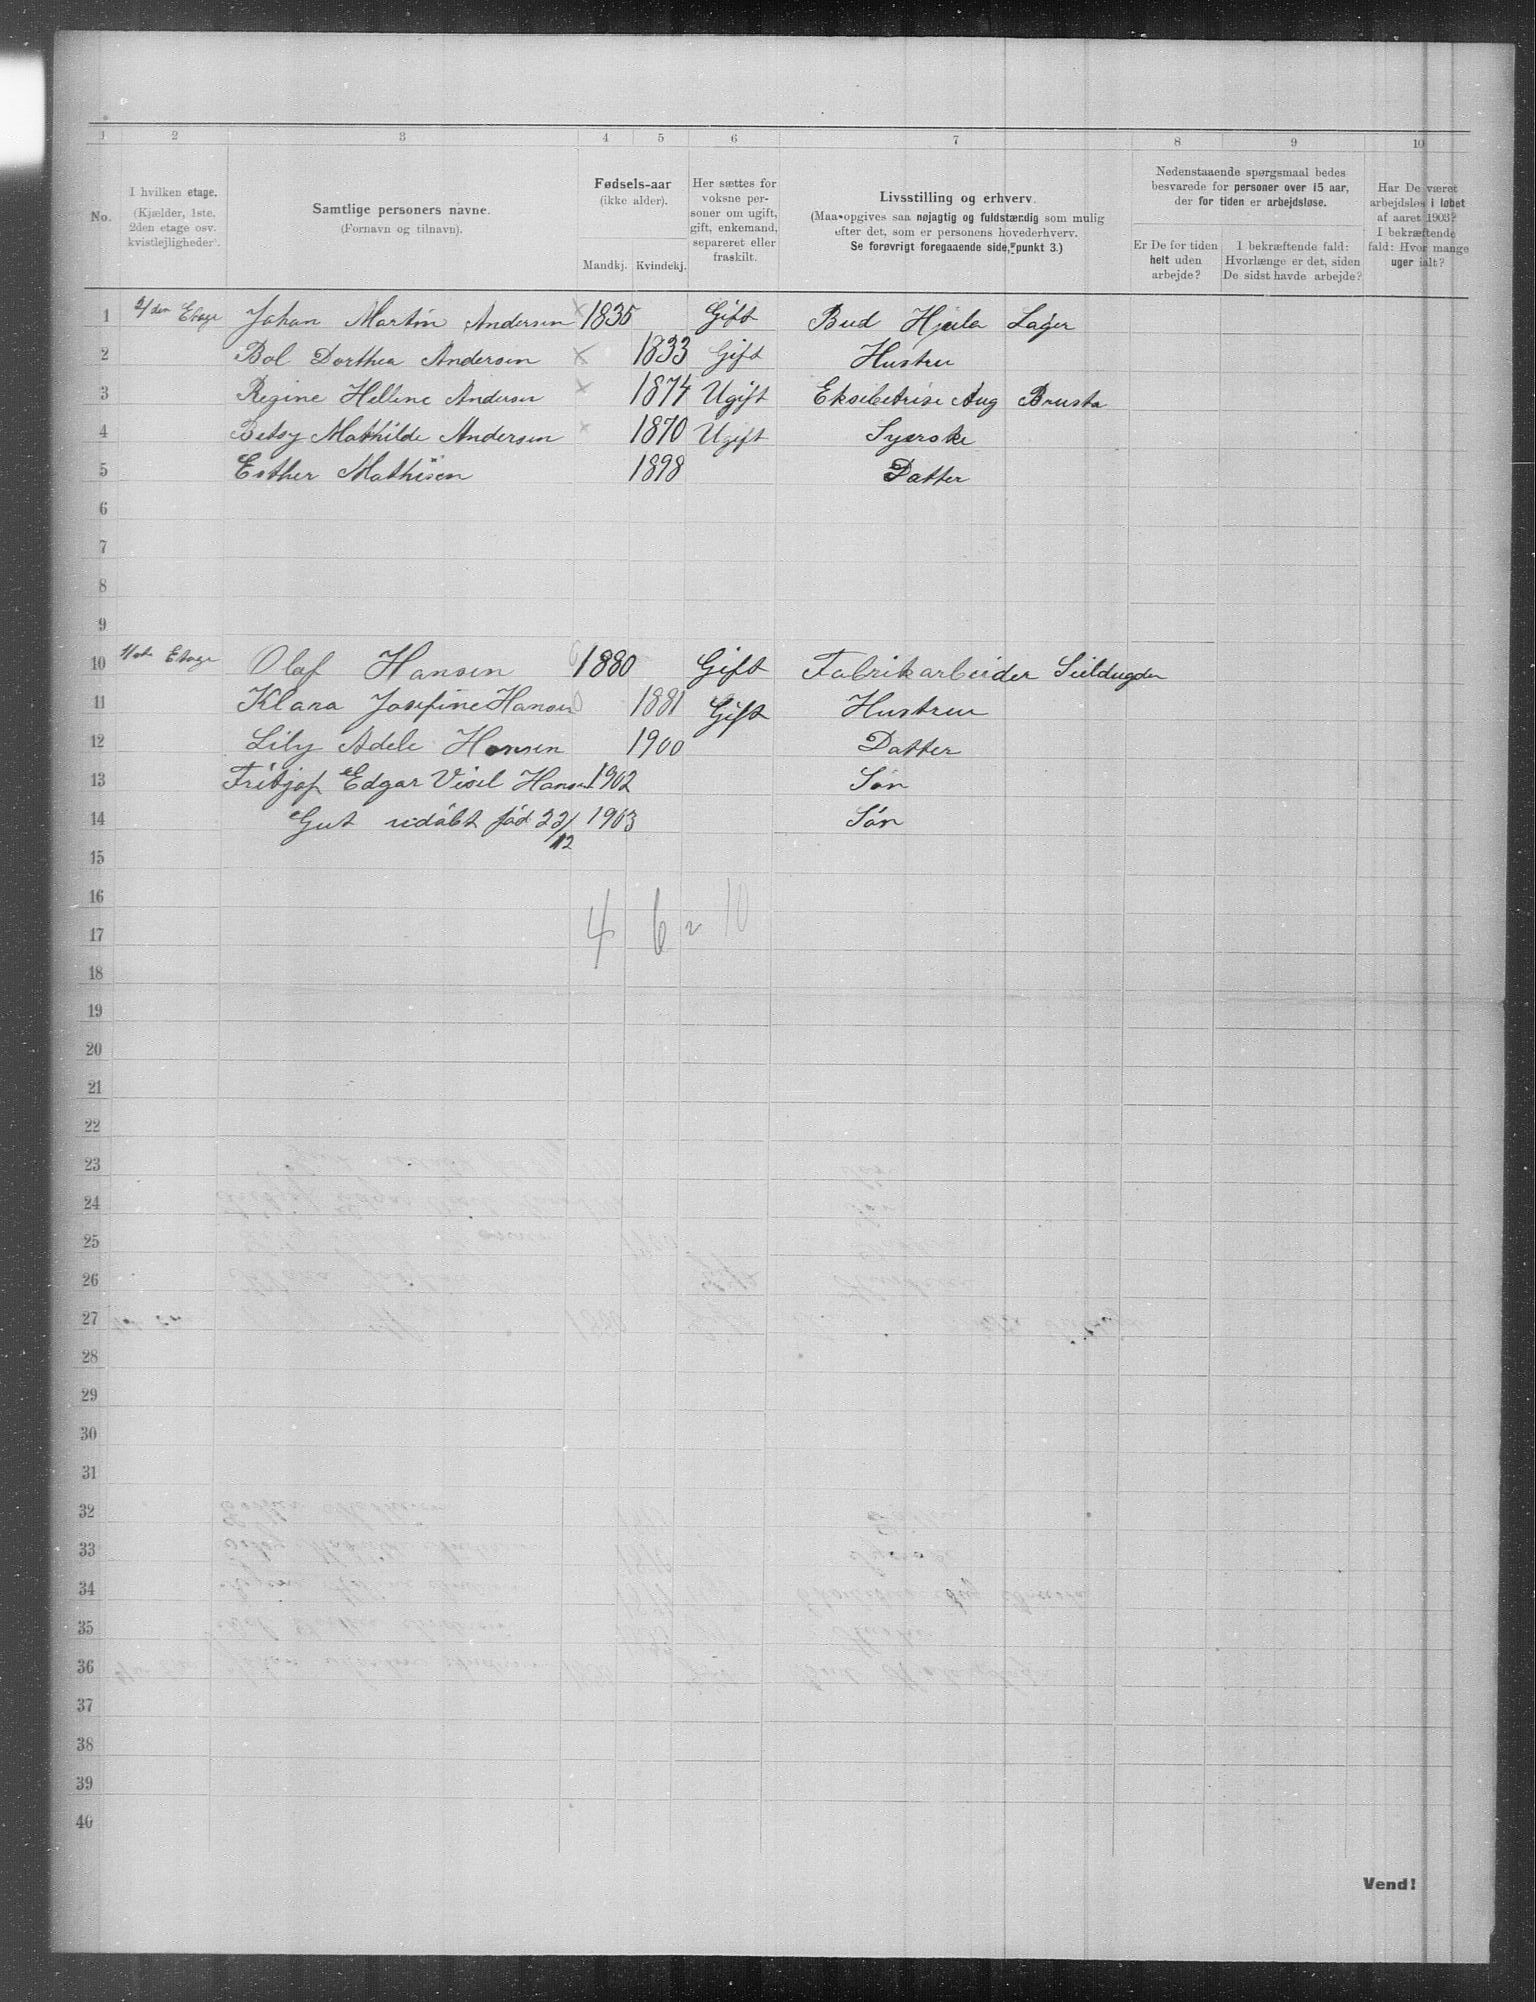 1 2 3 4 5 6 7 8 9 10
No.
I hvilken etage.
(Kjælder, 1ste,
2den etage osv.
kvistlejligheder).
Samtlige personers navne.
(Fornavn og tilnavn).
Fødsels-aar
(ikke alder).
Mandkj. Kvindekj.
Her sættes for
voksne per-
soner om ugift,
gift, enkemand,
separeret eller
fraskilt.
Livsstilling og erhverv.
(Maa opgives saa nøjagtig og fuldstændig som mulig
efter det, som er personens hovederhverv.
Se forøvrigt foregaaende side, punkt 3.)
Nedenstaaende spørgsmaal bedes
besvarede for personer over 15 aar,
der for tiden er arbejdsløse.
Er De for tiden
helt uden
arbejde?
I bekræftende fald:
Hvorlænge er det, siden
De sidst havde arbejde?
Har De været
arbejdsløs i løbet
af aaret 1903?
I bekræftende
fald: Hvor mange
uger ialt?
1 2/den Etage Johan Martin Andersen × 1835 Gift Bud Hjula Lager
2 Bol Dorthea Andersen × 1833 Gift Hustru
3 Regine Helene Andersen × 1874 Ugift Aug Brusta
4 Betsy Mathilde Andersen × 1870 Ugift Syerske
5 Esther Mathisen 1898 Datter
6
7
8
9
10 1/ste Etage Olaf Hansen 1880 Gift Fabrikarbeider Seildugden
11 Klara Josefine Hansen 1881 Gift Hustru
12 Lily Adele Hansen 1900 Datter
13 Fritjof Edgar Hansen 1902 Søn
14 Gut udøbt fød 22/12 1903 Søn
15
16
17 4 6 = 10
18
19
20
21
22
23
24
25
26
27
28
29
30
31
32
33
34
35
36
37
38
39
40
Vend!